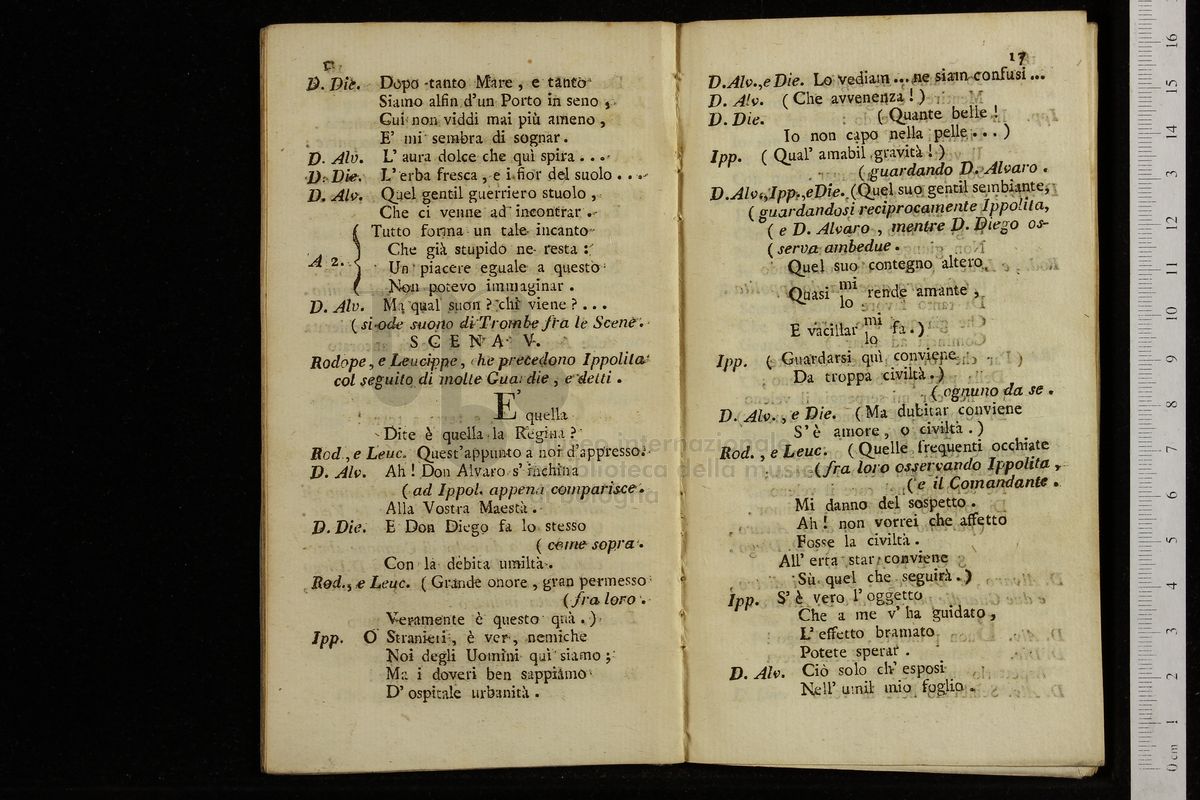 D. Die. Dopo tanto Mare, e tanto
Siamo alfin d'un Porto in seno,
Cui non viddi mai più ameno,
E' mi sembra di sognar.
D. Alv. L' aura dolce che quì spira . . .
D. Die. L' erba fresca, e i fior del suolo . . .
D. Alv. Quel gentil guerriero stuolo,
Che ci venne ad incontrar.
Tutto forma un tale incanto
Che già stupido ne resta:
A 2.
Un piacere eguale a questo
Non potevo immaginar.
D. Alv. Ma qual suon? chi viene? . . .
( si ode suono di Trombe fra le Scene.
SCENA V.
Rodope, e Leucippe, che precedono Ippolita
col seguito di molte Guardie, e detti.
E' quella
Dite è quella la Regina?
Rod., e Leuc. Quest' appunto a noi d'appresso.
D. Alv. Ah! Don Alvaro s' inchina
( ad Ippol. appena comparisce.
Alla Vostra Maestà.
D. Die. E Don Diego fa lo stesso
( come sopra.
Con la debita umiltà.
Rod., e Leuc. ( Grande onore, gran permesso
( fra loro.
Veramente è questo quà. )
Ipp. O Stranieri, è ver, nemiche
Noi degli Uomini quì siamo;
Ma i doveri ben sappiamo
D' ospitale urbanità.
17
D. Alv., e Die. Lo vediam ... ne siam confusi ...
D. Alv. ( Che avvenenza! )
D. Die. ( Quante belle!
Io non capo nella pelle . . . )
Ipp. ( Qual' amabil gravità! )
( guardando D. Alvaro.
D. Alv., Ipp., e Die. (Quel suo gentil sembiante,
( guardandosi reciprocamente Ippolita,
( e D. Alvaro, mentre D. Diego os-
( serva ambedue.
Quel suo contegno altero
Quasi mi lo rende amante,
E vacillar mi lo fa. )
Ipp. ( Guardarsi quì conviene
Da troppa civiltà. )
( ognuno da se.
D. Alv., e Die. ( Ma dubitar conviene
S' è amore, o civiltà. )
Rod., e Leuc. ( Quelle frequenti occhiate
( fra loro osservando Ippolita,
( e il Comandante.
Mi danno del sospetto.
Ah! non vorrei che affetto
Fosse la civiltà.
All' erta star conviene
Sù quel che seguirà. )
Ipp. S' è vero l' oggetto
Che a me v' ha guidato,
L' effetto bramato
Potete sperar.
D. Alv. Ciò solo ch' esposi
Nell' umil mio foglio.
museo internazionale
biblioteca della musica
0 cm 1 2 3 4 5 6 7 8 9 10 11 12 13 14 15 16